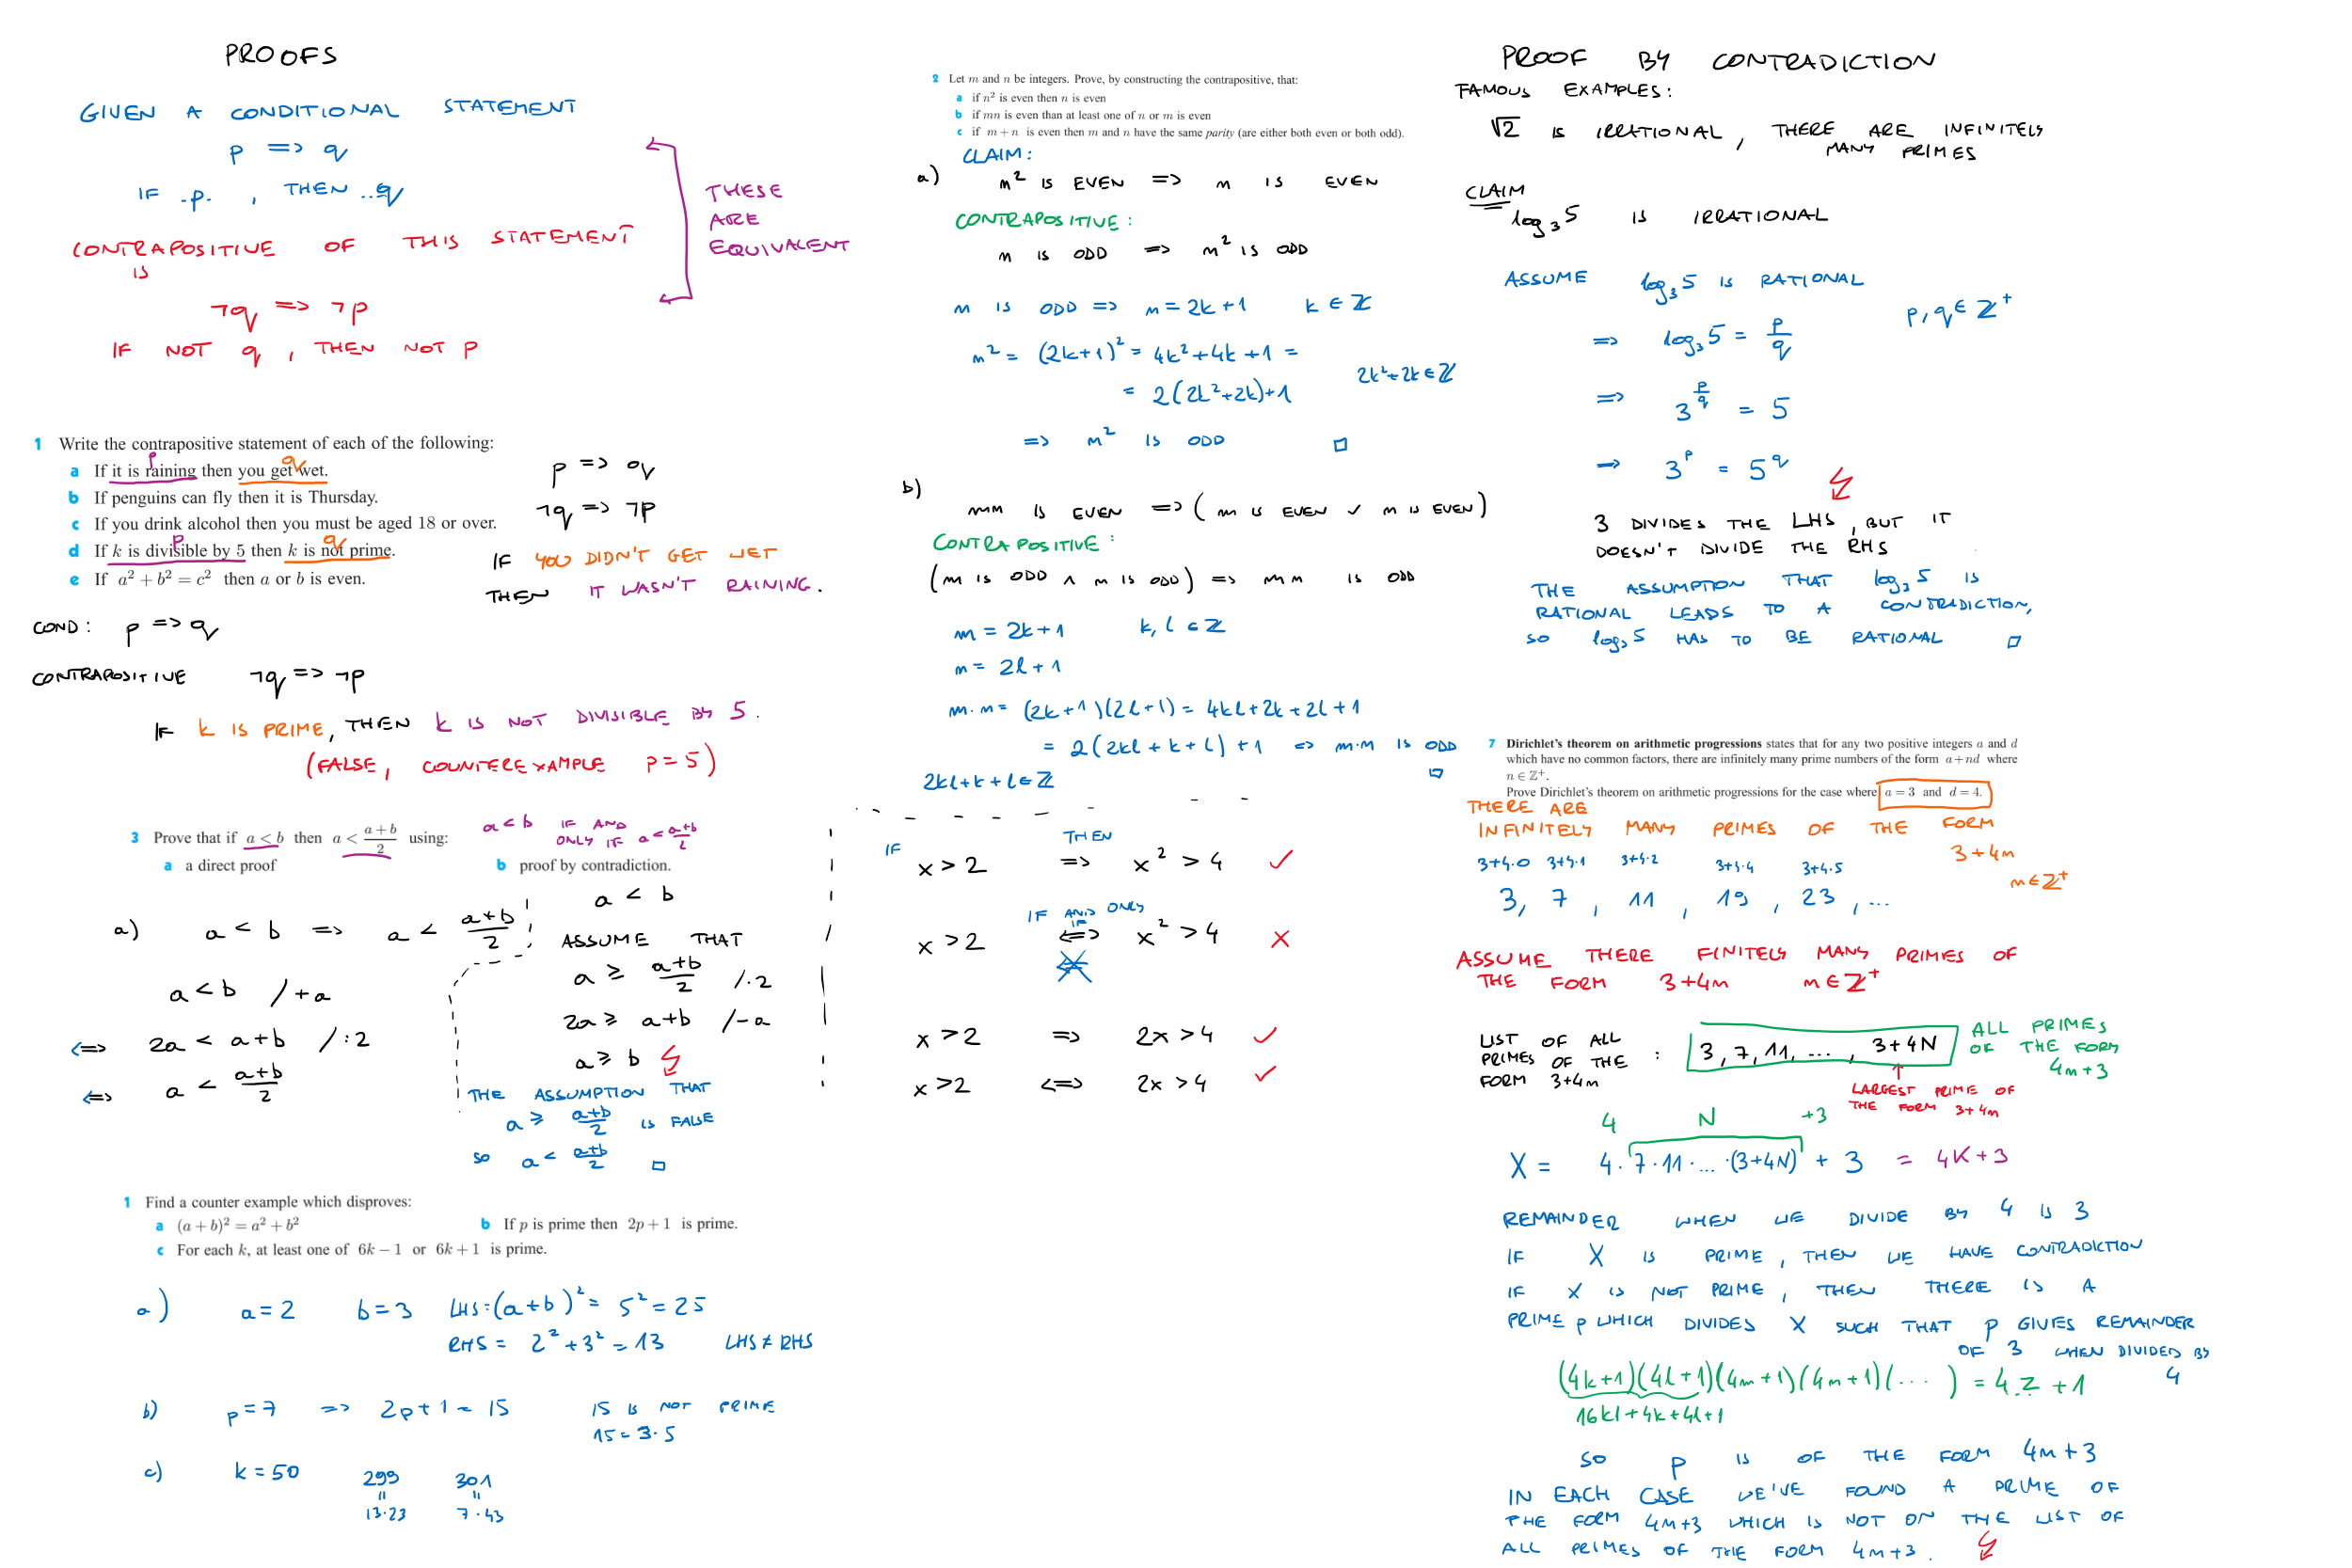 PROOFS
GIVEN A CONDITIONAL STATEMENT
p => q
IF .p. , THEN ..q
CONTRAPOSITIVE OF THIS STATEMENT
IS
¬q => ¬p
IF NOT q , THEN NOT p
THESE
ARE
EQUIVALENT
1 Write the contrapositive statement of each of the following:
a If it is raining then you get wet.
b If penguins can fly then it is Thursday.
c If you drink alcohol then you must be aged 18 or over.
d If k is divisible by 5 then k is not prime.
e If a² + b² = c² then a or b is even.
p
q
p
q
p => q
¬q => ¬p
IF YOU DIDN'T GET WET
THEN IT WASN'T RAINING.
COND: p => q
CONTRAPOSITIVE ¬q => ¬p
IF k IS PRIME, THEN k IS NOT DIVISIBLE BY 5.
(FALSE, COUNTEREXAMPLE p=5)
3 Prove that if a < b then a < (a+b)/2 using:
a a direct proof b proof by contradiction.
a<b IF AND
ONLY IF a < (a+b)/2
a) a < b => a < (a+b)/2
a < b /+a
<=> 2a < a+b /:2
<=> a < (a+b)/2
a < b
ASSUME THAT
a ≥ (a+b)/2 /·2
2a ≥ a+b /-a
a ≥ b ↯
THE ASSUMPTION THAT
a ≥ (a+b)/2 IS FALSE
SO a < (a+b)/2 □
1 Find a counter example which disproves:
a (a + b)² = a² + b² b If p is prime then 2p + 1 is prime.
c For each k, at least one of 6k − 1 or 6k + 1 is prime.
a) a=2 b=3 LHS=(a+b)² = 5² = 25
RHS = 2²+3² = 13 LHS ≠ RHS
b) p=7 => 2p+1 = 15 15 IS NOT PRIME
15 = 3·5
c) k = 50 299 301
= =
13·23 7·43
2 Let m and n be integers. Prove, by constructing the contrapositive, that:
a if n² is even then n is even
b if mn is even than at least one of n or m is even
c if m + n is even then m and n have the same parity (are either both even or both odd).
CLAIM:
a) n² IS EVEN => n IS EVEN
CONTRAPOSITIVE:
n IS ODD => n² IS ODD
n IS ODD => n = 2k+1 k ∈ ℤ
n² = (2k+1)² = 4k²+4k+1 =
= 2(2k²+2k)+1 2k²+2k ∈ ℤ
=> n² IS ODD □
b)
mn IS EVEN => (m IS EVEN ∨ n IS EVEN)
CONTRAPOSITIVE:
(m IS ODD ∧ n IS ODD) => mn IS ODD
m = 2k+1 k, l ∈ ℤ
n = 2l+1
m·n = (2k+1)(2l+1) = 4kl+2k+2l+1
= 2(2kl+k+l)+1 => m·n IS ODD
□
2kl+k+l ∈ ℤ
IF THEN
x > 2 => x² > 4 ✓
IF AND ONLY
IF
x > 2 <=> x² > 4 ×
x > 2 => 2x > 4 ✓
x > 2 <=> 2x > 4 ✓
PROOF BY CONTRADICTION
FAMOUS EXAMPLES:
√2 IS IRRATIONAL, THERE ARE INFINITELY
MANY PRIMES
CLAIM
log₃5 IS IRRATIONAL
ASSUME log₃5 IS RATIONAL
p, q ∈ ℤ⁺
=> log₃5 = p/q
=> 3^(p/q) = 5
=> 3^p = 5^q ↯
3 DIVIDES THE LHS, BUT IT
DOESN'T DIVIDE THE RHS
THE ASSUMPTION THAT log₃5 IS
RATIONAL LEADS TO A CONTRADICTION,
SO log₃5 HAS TO BE RATIONAL □
7 Dirichlet's theorem on arithmetic progressions states that for any two positive integers a and d
which have no common factors, there are infinitely many prime numbers of the form a + nd where
n ∈ ℤ⁺.
Prove Dirichlet's theorem on arithmetic progressions for the case where a = 3 and d = 4.
THERE ARE
INFINITELY MANY PRIMES OF THE FORM
3+4n
n ∈ ℤ⁺
3+4·0 3+4·1 3+4·2 3+4·4 3+4·5
3, 7, 11, 19, 23, ...
ASSUME THERE FINITELY MANY PRIMES OF
THE FORM 3+4n n ∈ ℤ⁺
LIST OF ALL
PRIMES OF THE :
FORM 3+4n
3, 7, 11, ..., 3+4N
ALL PRIMES
OF THE FORM
4n+3
LARGEST PRIME OF
THE FORM 3+4n
4 N +3
X = 4·7·11·...·(3+4N) + 3 = 4K+3
REMAINDER WHEN WE DIVIDE BY 4 IS 3
IF X IS PRIME, THEN WE HAVE CONTRADICTION
IF X IS NOT PRIME, THEN THERE IS A
PRIME p WHICH DIVIDES X SUCH THAT p GIVES REMAINDER
OF 3 WHEN DIVIDED BY
4
(4k+1)(4l+1)(4m+1)(4n+1)(...) = 4·Z + 1
16kl+4k+4l+1
SO p IS OF THE FORM 4n+3
IN EACH CASE WE'VE FOUND A PRIME OF
THE FORM 4n+3 WHICH IS NOT ON THE LIST OF
ALL PRIMES OF THE FORM 4n+3. ↯